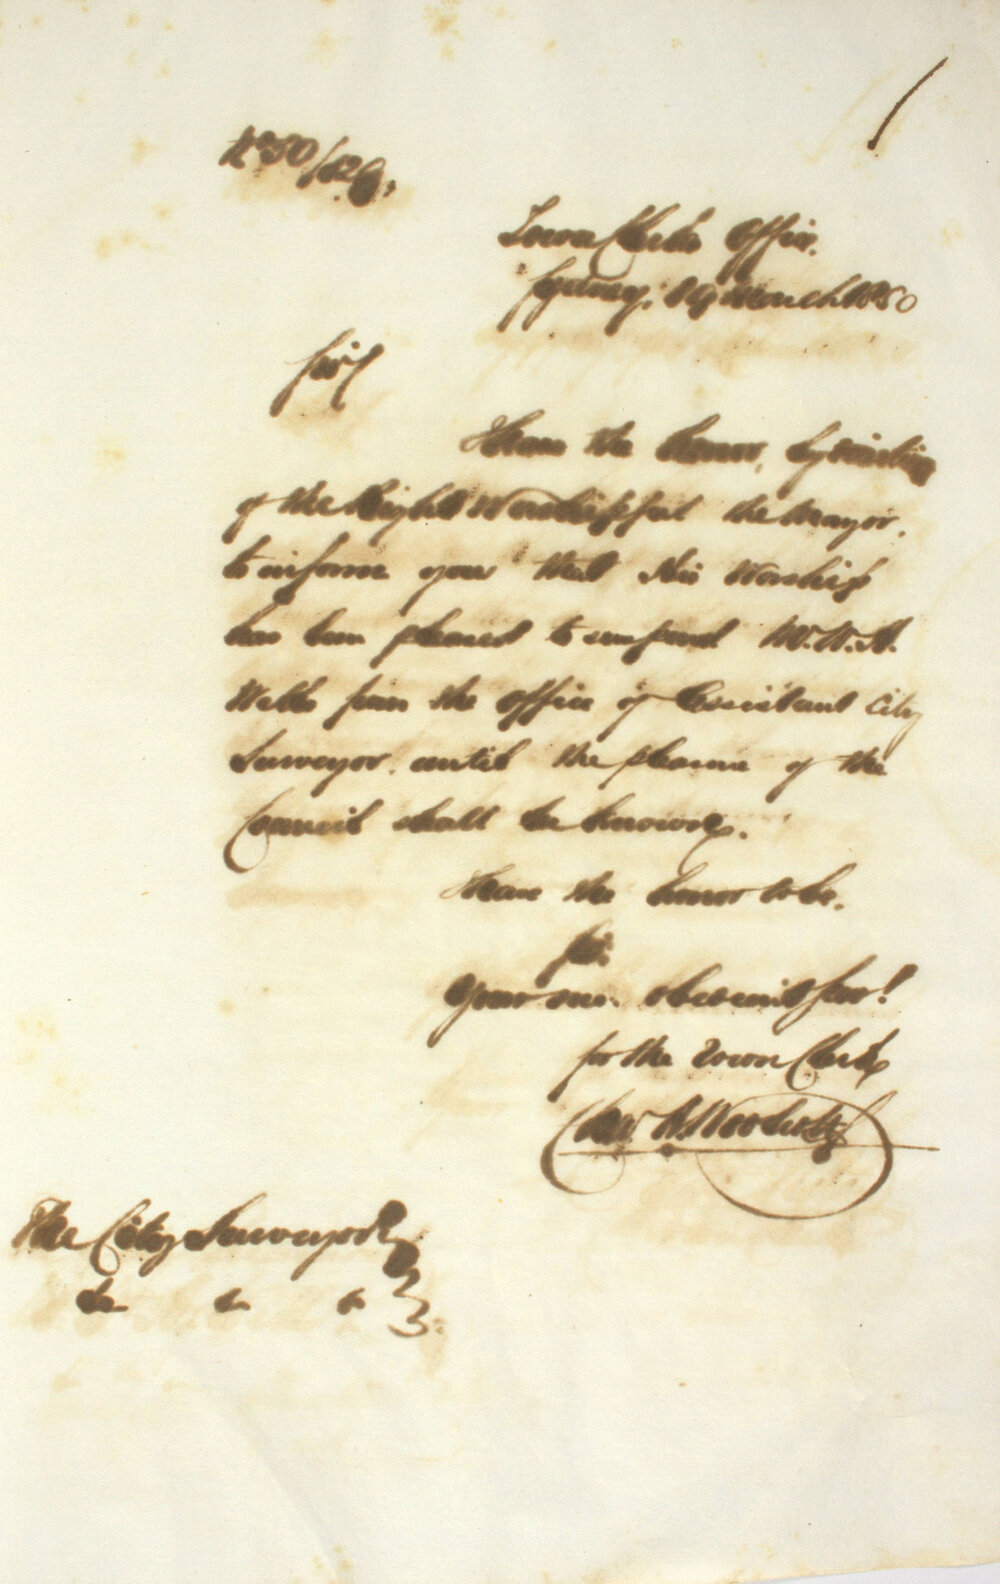 No 50/126.
Town Clerks Office.
Sydney. 19 March 1850
Sir/
I have the honor, by direction
of the Right Worshipful the Mayor.
to inform you that His Worship
has been pleased to suspend Mr. W. A.
Webb from the office of Assistant City
Surveyor. until the pleasure of the
Council shall be known.
I have the honor to be.
Sir.
Your obedient Serv!
for the Town Clerk
The City Surveyor
&c &c &c